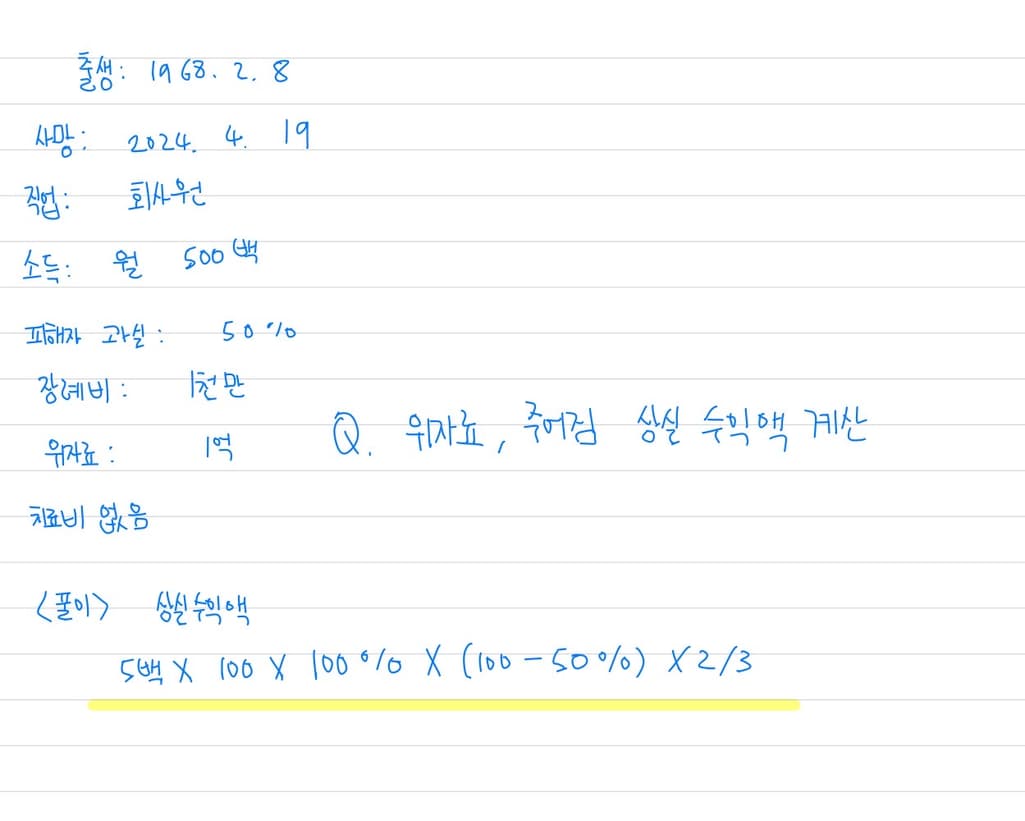 출생: 1968. 2. 8
사망: 2024. 4. 19
직업: 회사원
소득: 월 500백
피해자 과실: 50%
장례비: 1천만
위자료: 1억
Q. 위자료, 주어짐 상실 수익액 계산
치료비 없음
<풀이> 상실수익액
5백 X 100 X 100% X (100-50%) X 2/3